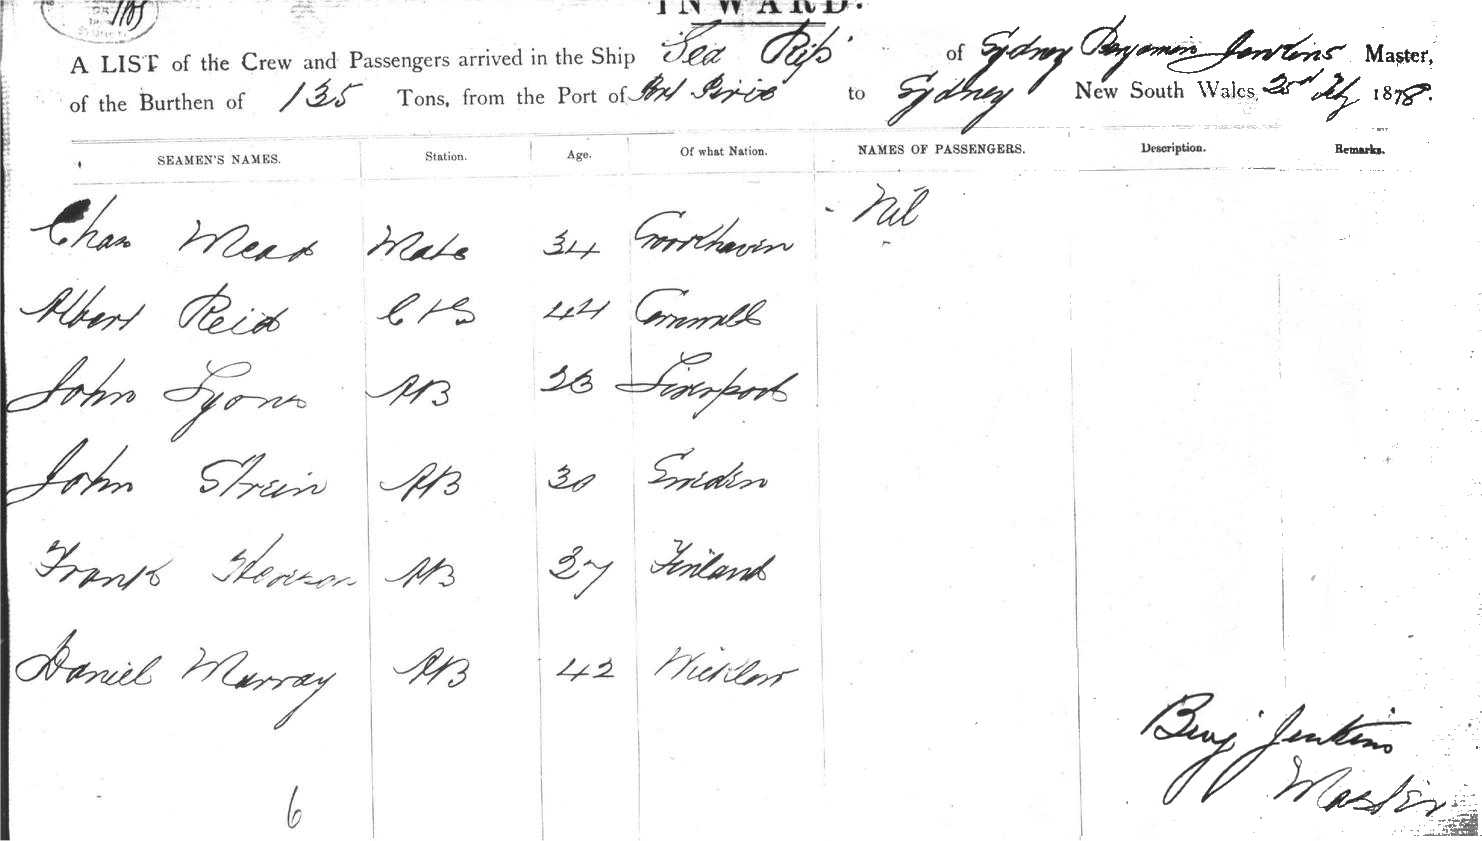 INWARD.
A LIST of the Crew and Passengers arrived in the Ship Sea Rip of Sydney Benjamin Jenkins Master,
of the Burthen of 135 Tons, from the Port of Port Pirie to Sydney New South Wales, 23rd Feby 1878.
SEAMEN'S NAMES. Station. Age. Of what Nation. NAMES OF PASSENGERS. Description. Remarks.
Chas Mead Mate 34 Crookhaven Nil
Albert Reid 44 Cornwall
John Lyons AB 23 Liverpool
John Strein AB 30
Frank AB 27 Finland
Daniel Murray AB 42 Wicklow
Benj Jenkins
Master
6